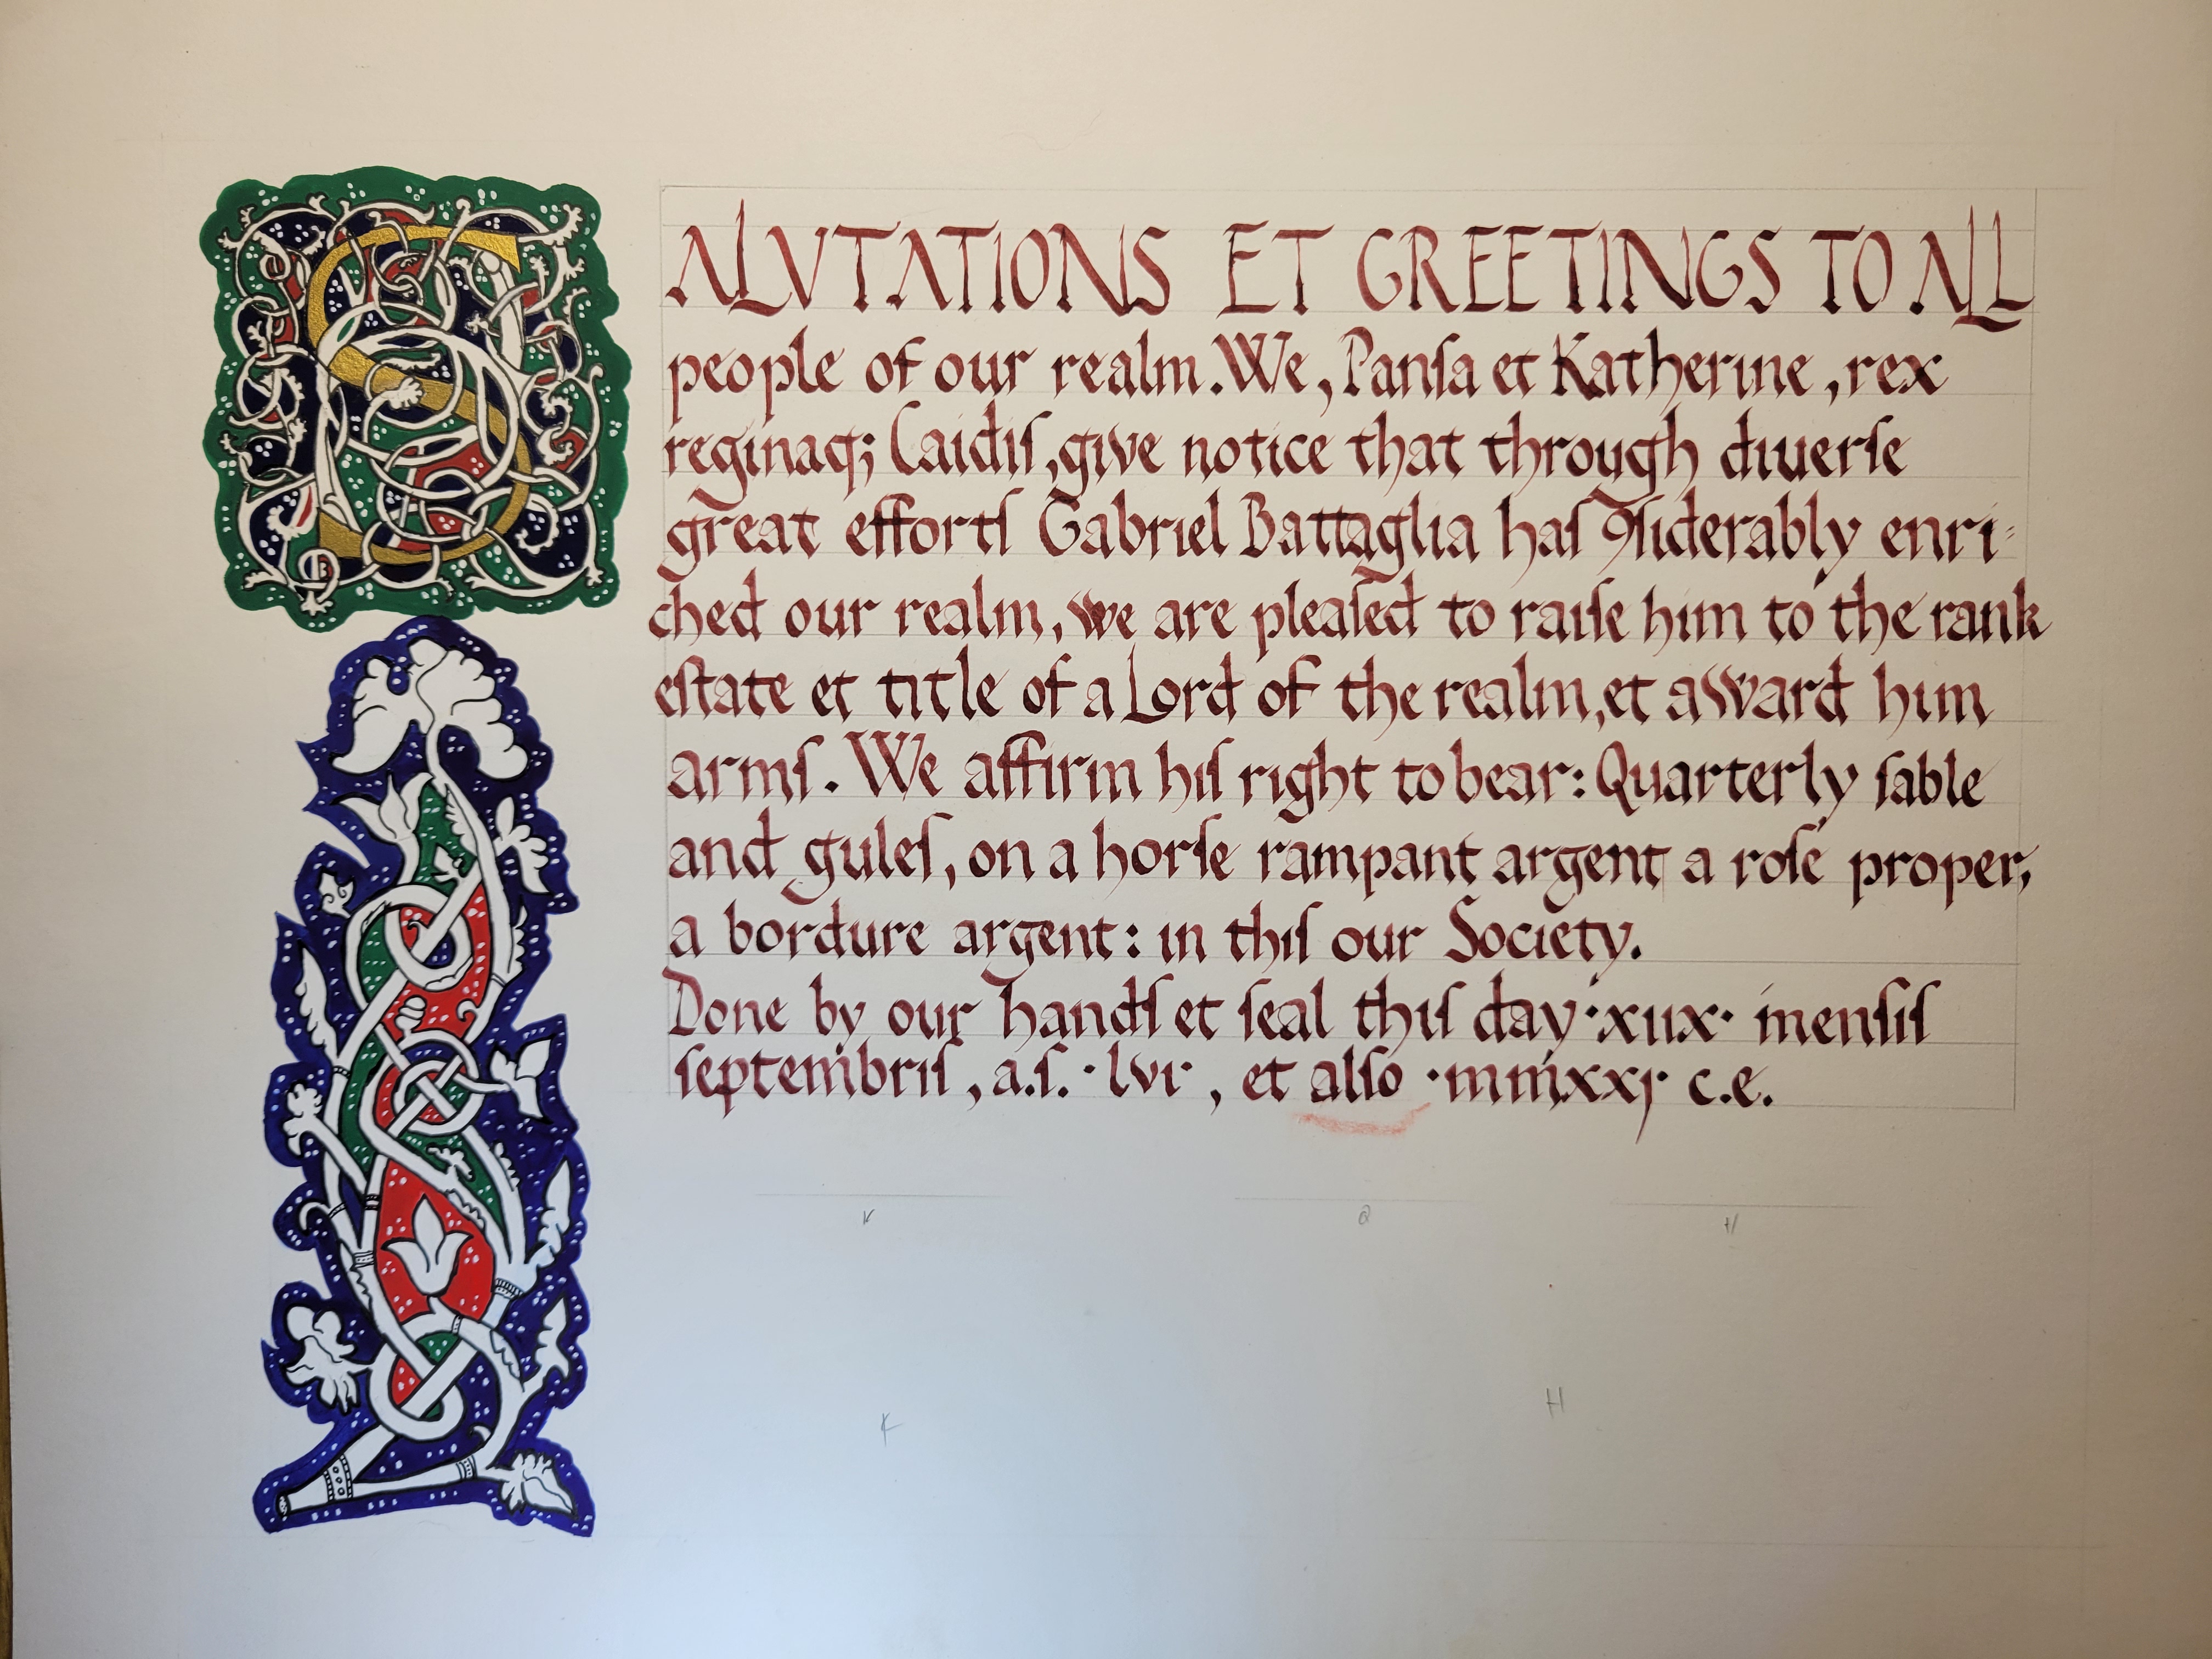 SALVTATIONS ET GREETINGS TO ALL
people of our realm. We, Panſa et Katherine, rex
reginaq; Caidiſ, give notice that through diuerſe
great effortſ Gabriel Battaglia haſ ꝯſiderably enri-
ched our realm, we are pleaſed to raiſe him to the rank
eſtate et title of a Lord of the realm, et award him
armſ. We affirm hiſ right to bear: Quarterly ſable
and guleſ, on a horſe rampant argent a roſe proper,
a bordure argent: in thiſ our Society.
Done by our handſ et ſeal thiſ day ·xiix· menſiſ
ſeptembriſ, a.ſ. ·lvi, et alſo ·mmxxj· c.e.
K Q H
K H